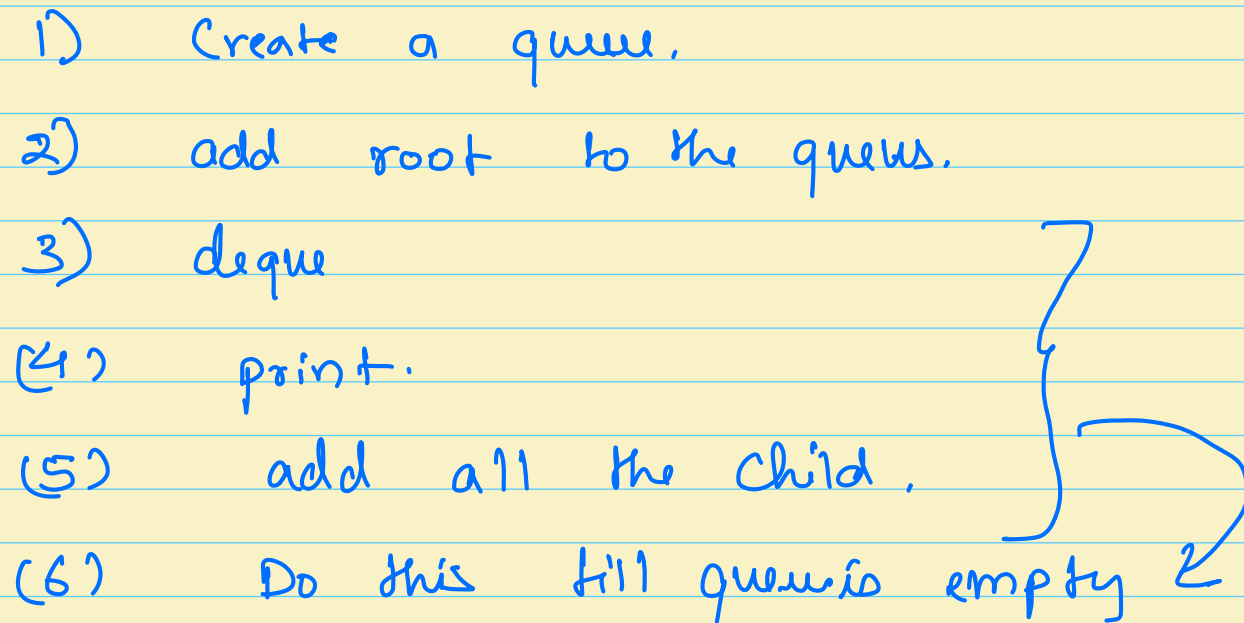 1) Create a queue.
2) add root to the queue.
3) deque
(4) print.
(5) add all the child.
(6) Do this till queue is empty